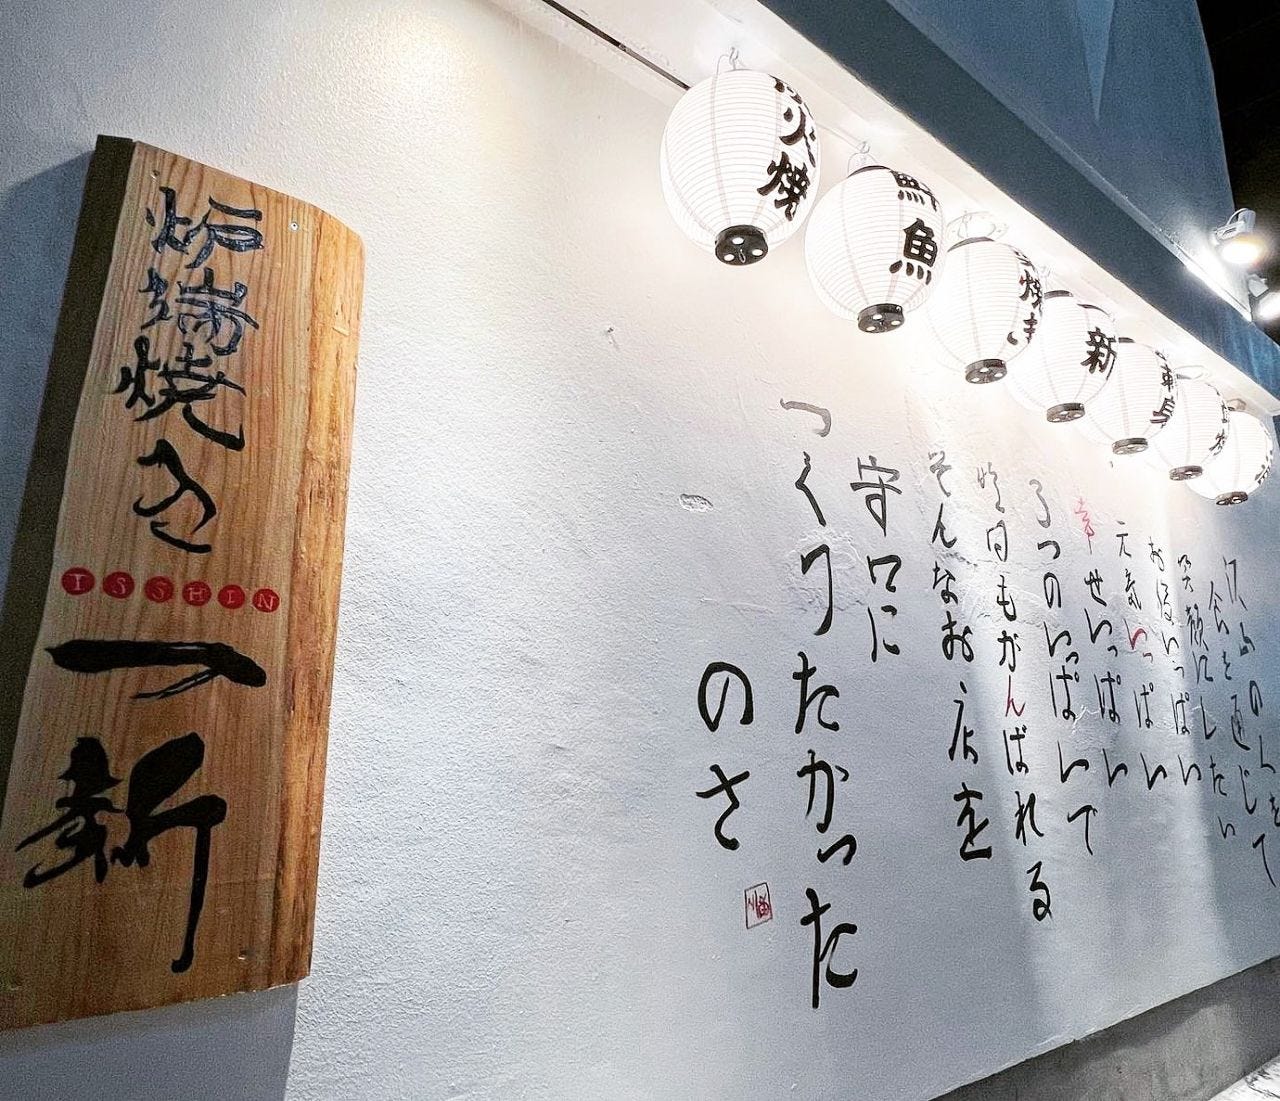 炉端焼き
ISSHIN
一新
火焼
鮮魚
焼き
新
沢山の人を
食いを通じて
笑顔にしたい
お酒いっぱい
元気いっぱい
幸せいっぱい
3つのいっぱいで
明日もがんばれる
そんなお店を
守口に
つくりたかった
のさ